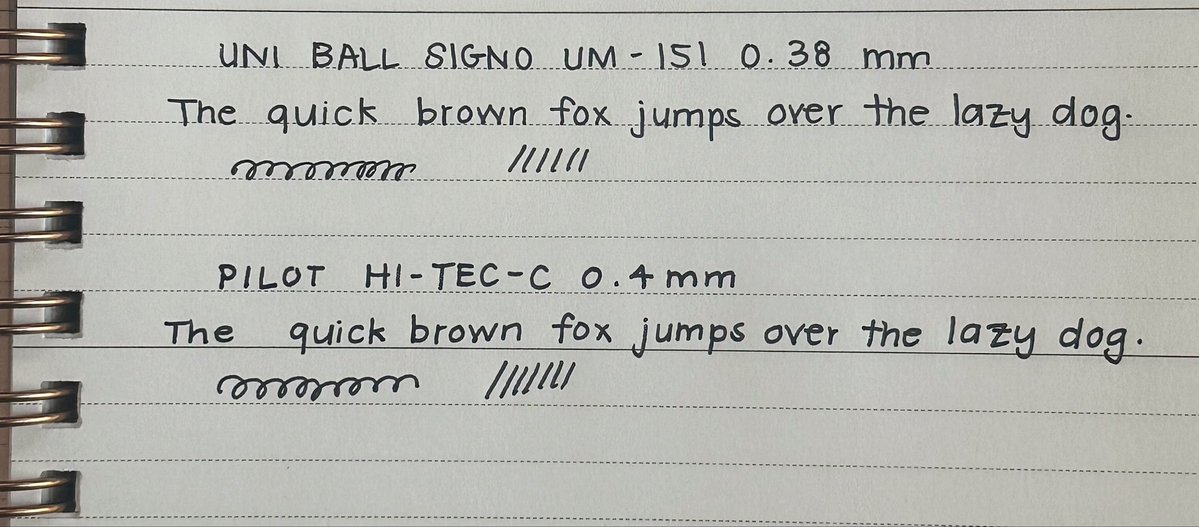 UNI BALL SIGNO UM-151 0.38 mm
The quick brown fox jumps over the lazy dog.
PILOT HI-TEC-C 0.4 mm
The quick brown fox jumps over the lazy dog.